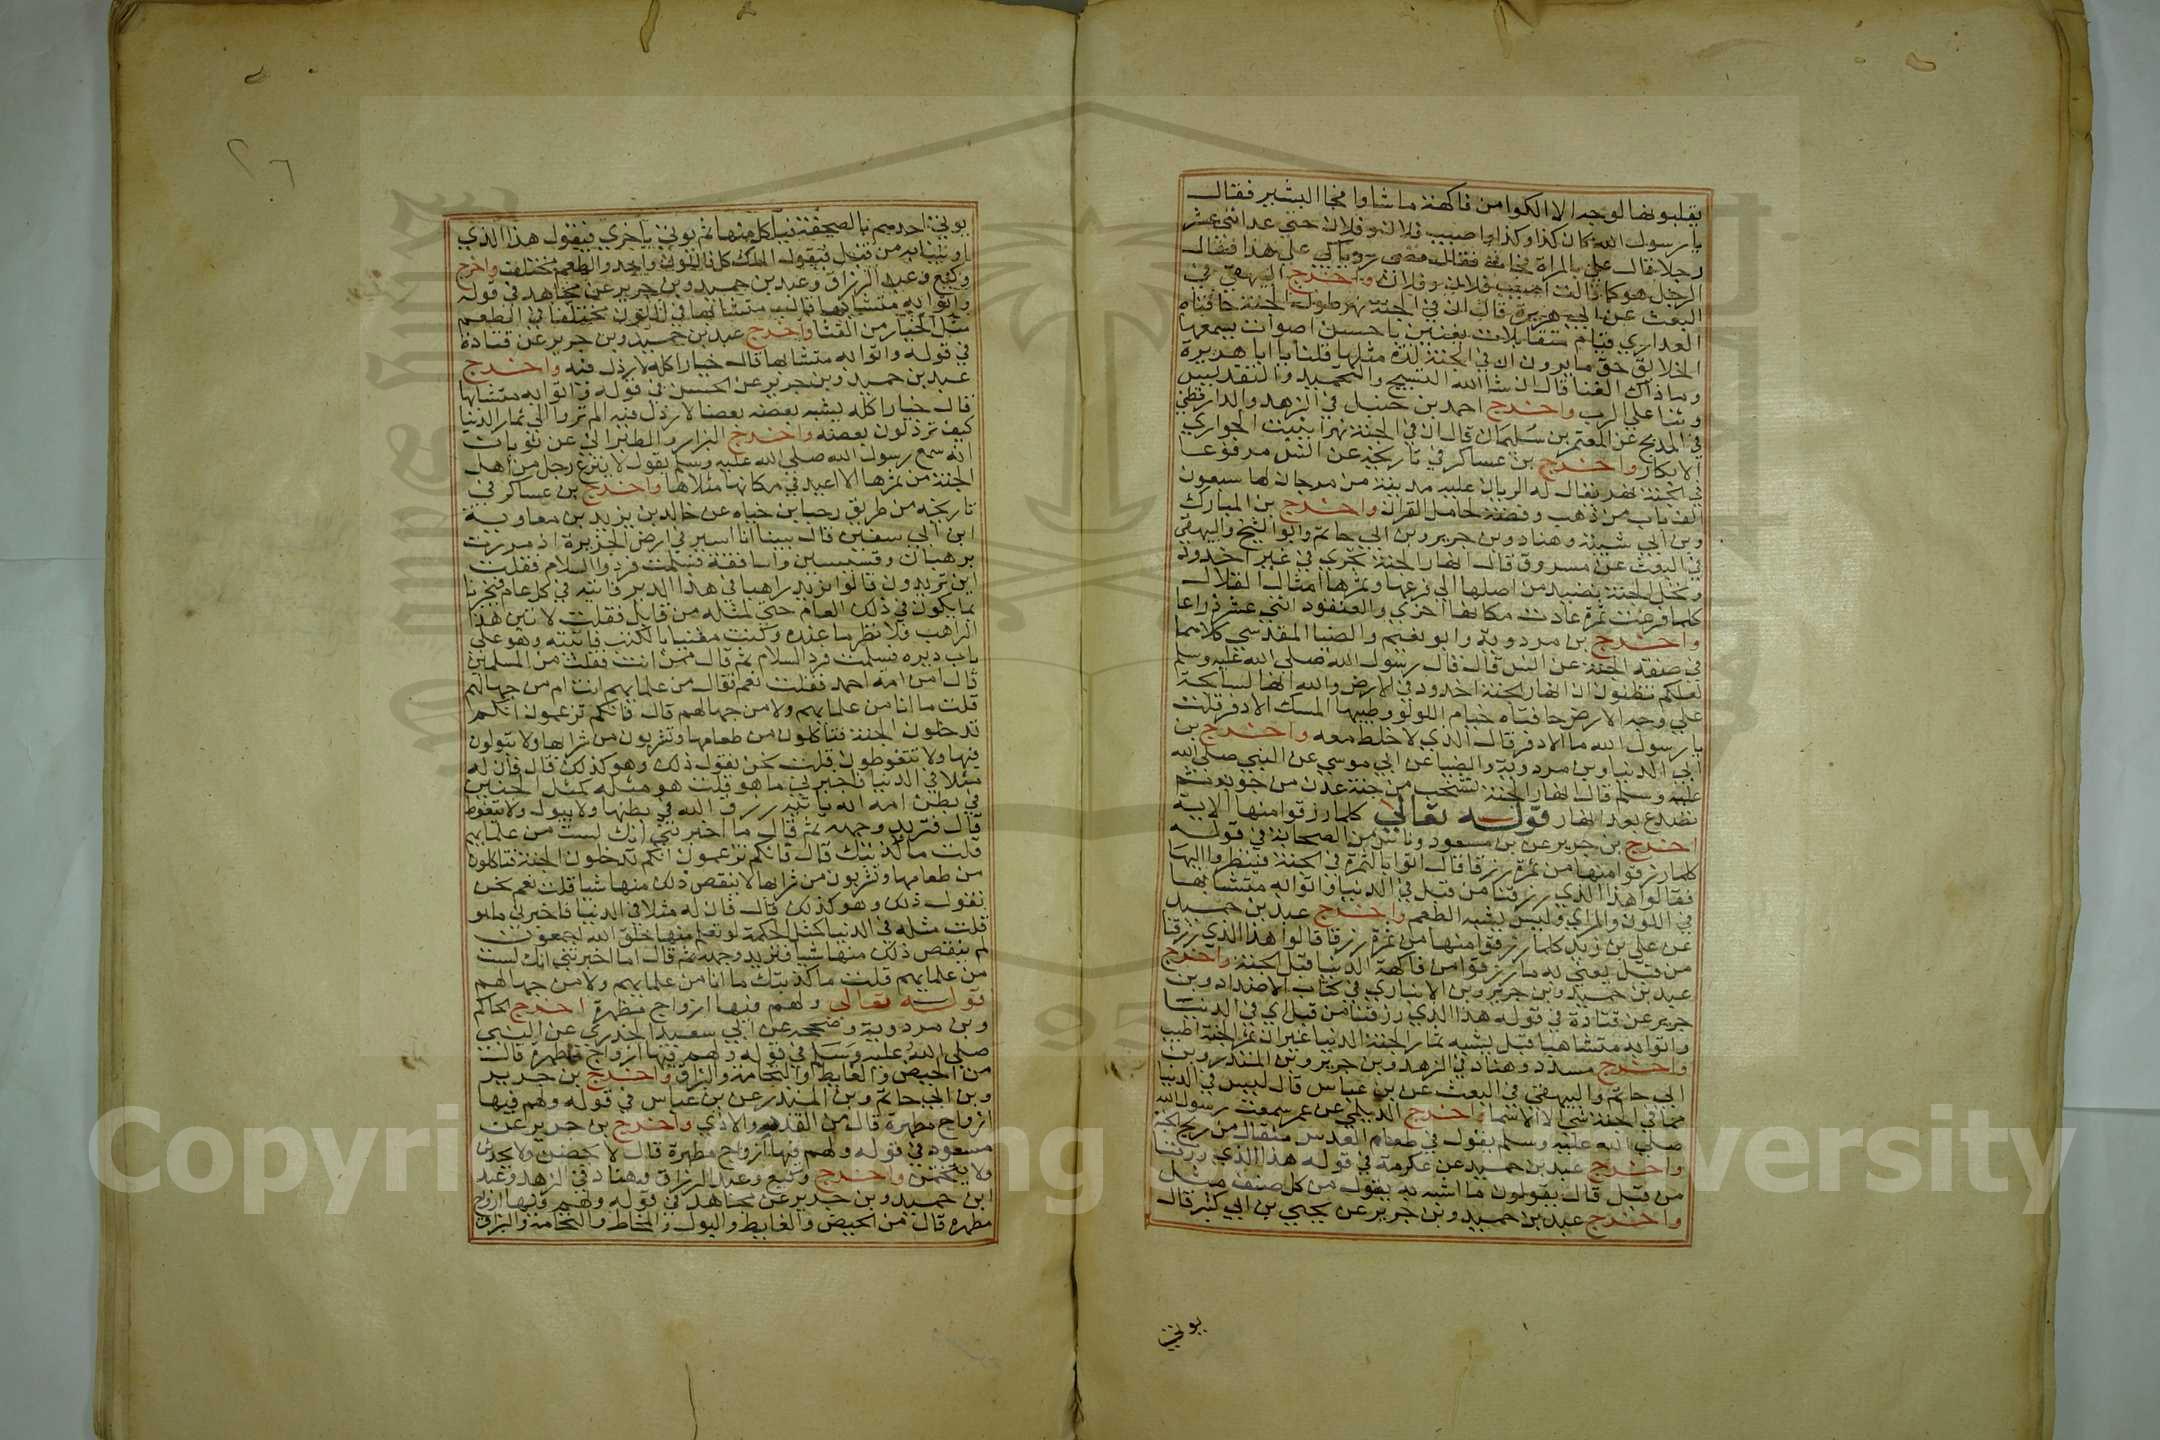 يقلبونها لوجه الا اكلوا من فاكهة ما شاوا فجا البشير فقال
يا رسول الله كان كذا وكذا واصيب فلان وفلان حتي عد اثني عشر
رجلا فقال علي بالمراة فجات فقال قصي روياك علي هذا فقال
الرجل هو كما قالت اصيب فلان وفلان واخرج البيهقي في
البعث عن ابي هريرة قال ان في الجنة نهر طول الجنة حافتاه
العذاري قيام متقابلات يغنين باحسن اصوات يسمعها
الخلايق حتي ما يرون ان في الجنة لذة مثلها قلنا يا ابا هريرة
وما ذاك الغنا قال ان شا الله التسبيح والتحميد والتقديس
وثنا علي الرب واخرج احمد بن حنبل في الزهد والدارقطني
في المدبج عن المعتمر بن سليمان قال ان في الجنة نهرا ينبت الجواري
الابكار واخرج بن عساكر في تاريخه عن انس مرفوعا
في الجنة نهر يقال له الريان عليه مدينة من مرجان لها سبعون
الف باب من ذهب وفضة لحامل القران واخرج بن المبارك
وبن ابي شيبة وهناد وبن جرير وبن ابي حاتم وابو الشيخ والبيهقي
في البعث عن مسروق قال انهار الجنة تجري في غير اخدود
ونخل الجنة نضيد من اصلها الي فرعها وثمرها امثال القلال
كلما نزعت ثمرة عادت مكانها اخري والعنقود اثني عشر ذراعا
واخرج بن مردوية وابو نعيم والضيا المقدسي كلاهما
في صفة الجنة عن انس قال قال رسول الله صلي الله عليه وسلم
لعلكم تظنون ان انهار الجنة اخدود في الارض والله انها لسايحة
علي وجه الارض حافتاه خيام اللولو وطينها المسك الادفر قلت
يا رسول الله ما الادفر قال الذي لا خلط معه واخرج بن
ابي الدنيا وبن مردوية والضيا عن ابي موسي عن النبي صلي الله
عليه وسلم قال انهار الجنة تشخب من جنة عدن من جوبة ثم
تصدع بعد انهار قوله تعالي كلما رزقوا منها الاية
اخرج بن جرير عن بن مسعود وناس من الصحابة في قوله
كلما رزقوا منها من ثمرة رزقا قال اتوا بالثمرة في الجنة فينظروا اليها
فقالوا هذا الذي رزقنا من قبل في الدنيا واتوا به متشابها
في اللون والمراي وليس يشبه الطعم واخرج عبد بن حميد
عن علي بن زيد كلما رزقوا منها من ثمرة رزقا قالوا هذا الذي رزقنا
من قبل يعني به ما رزقوا من فاكهة الدنيا قبل الجنة واخرج
عبد بن حميد وبن جرير وبن الانباري في كتاب الاضداد وبن
جرير عن قتادة في قوله هذا الذي رزقنا من قبل اي في الدنيا
واتوا به متشابها قبل يشبه ثمار الجنة الدنيا غير ان ثمر الجنة اطيب
واخرج مسدد وهناد في الزهد وبن جرير وبن المنذر وبن
ابي حاتم والبيهقي في البعث عن بن عباس قال ليس في الدنيا
مما في الجنة شي الا الاسما واخرج الديلمي عن عمر سمعت رسول الله
صلي الله عليه وسلم يقول في طعام العدس مثقال من ريح الجنة
واخرج عبد بن حميد عن عكرمة في قوله هذا الذي رزقنا
من قبل قال يقولون ما اشبه به يقول من كل صنف مثل
واخرج عبد بن حميد وبن جرير عن يحيي بن ابي كثير قال
يوتي
يوتي احدهم بالصحفة فياكل منها ثم يوتي باخري فيقول هذا الذي
اوتينا به من قبل فيقول الملك كل فاللون واحد والطعم مختلف واخرج
وكيع وعبد الرزاق وعبد بن حميد وبن جرير عن مجاهد في قوله
واتوا به متشابها قال متشابها في اللون مختلفا في الطعم
مثل الخيار من القثا واخرج عبد بن حميد وبن جرير عن قتادة
في قوله واتوا به متشابها قال خيارا كله لا رذل فيه واخرج
عبد بن حميد وبن جرير عن الحسن في قوله واتوا به متشابها
قال خيارا كله يشبه بعضه بعضا لا رذل فيه الم تروا الي ثمار الدنيا
كيف ترذلون بعضه واخرج البزار والطبراني عن ثوبان
انه سمع رسول الله صلي الله عليه وسلم يقول لا ينزع رجل من اهل
الجنة من ثمرها الا اعيد في مكانها مثلاها واخرج بن عساكر في
تاريخه من طريق رجا بن حياه عن خالد بن يزيد بن معاوية
ابن ابي سفين قال بينا انا اسير في ارض الجزيرة اذ مررت
برهبان وقسيسين واساقفة فسلمت فردوا السلام فقلت
اين تريدون قالوا نريد راهبا في هذا الدير فاتيه في كل عام فيخبرنا
بما يكون في ذلك العام حتي لمثله من قابل فقلت لاتين هذا
الراهب فلانظر ما عنده وكنت معنيا بالكتب فاتيته وهو علي
باب ديره فسلمت فرد السلام ثم قال ممن انت فقلت من المسلمين
قال امن امه احمد فقلت نعم فقال من علمايهم انت ام من جهالهم
قلت ما انا من علمايهم ولا من جهالهم قال فانكم تزعمون انكم
تدخلون الجنة فتاكلون من طعامها وتشربون من شرابها ولا تبولون
فيها ولا تتغوطون قلت نحن نقول ذلك وهو كذلك قال فان له
مثلا في الدنيا فاخبرني ما هو قلت هو مثله كمثل الجنين
في بطن امه انه ياتيه رزق الله في بطنها ولا يبول ولا يتغوط
قال فتربد وجهه ثم قال ما اخبرتني انك لست من علمايهم
قلت ما كذبتك قال فانكم تزعمون انكم تدخلون الجنة فتاكلون
من طعامها وتشربون من شرابها لا ينقص ذلك منها شيا قلت نعم نحن
نقول ذلك وهو كذلك قال فان له مثلا في الدنيا فاخبرني ما هو
قلت مثله في الدنيا كمثل الحكمة لو تعلم منها خلق الله اجمعون
لم ينقص ذلك منها شيا فتربد وجهه ثم قال اما اخبرتني انك لست
من علمايهم قلت ما كذبتك ما انا من علمايهم ولا من جهالهم
قوله تعالي ولهم فيها ازواج مطهرة اخرج الحاكم
وبن مردوية وصححه عن ابي سعيد الخدري عن النبي
صلي الله عليه وسلم في قوله ولهم فيها ازواج مطهرة قالت
من الحيض والغايط والنخامة والبزاق واخرج بن جرير
وبن ابي حاتم وبن المنذر عن بن عباس في قوله ولهم فيها
ازواج مطهرة قال من القذر والاذي واخرج بن جرير عن
مسعود في قوله ولهم فيها ازواج مطهرة قال لا يحضن ولا يحدثن
ولا يتخمن واخرج وكيع وعبد الرزاق وهناد في الزهد وعبد
ابن حميد وبن جرير عن مجاهد في قوله ولهم فيها ازواج
مطهره قال من الحيض والغايط والبول والمخاط والنخامة والبزاق